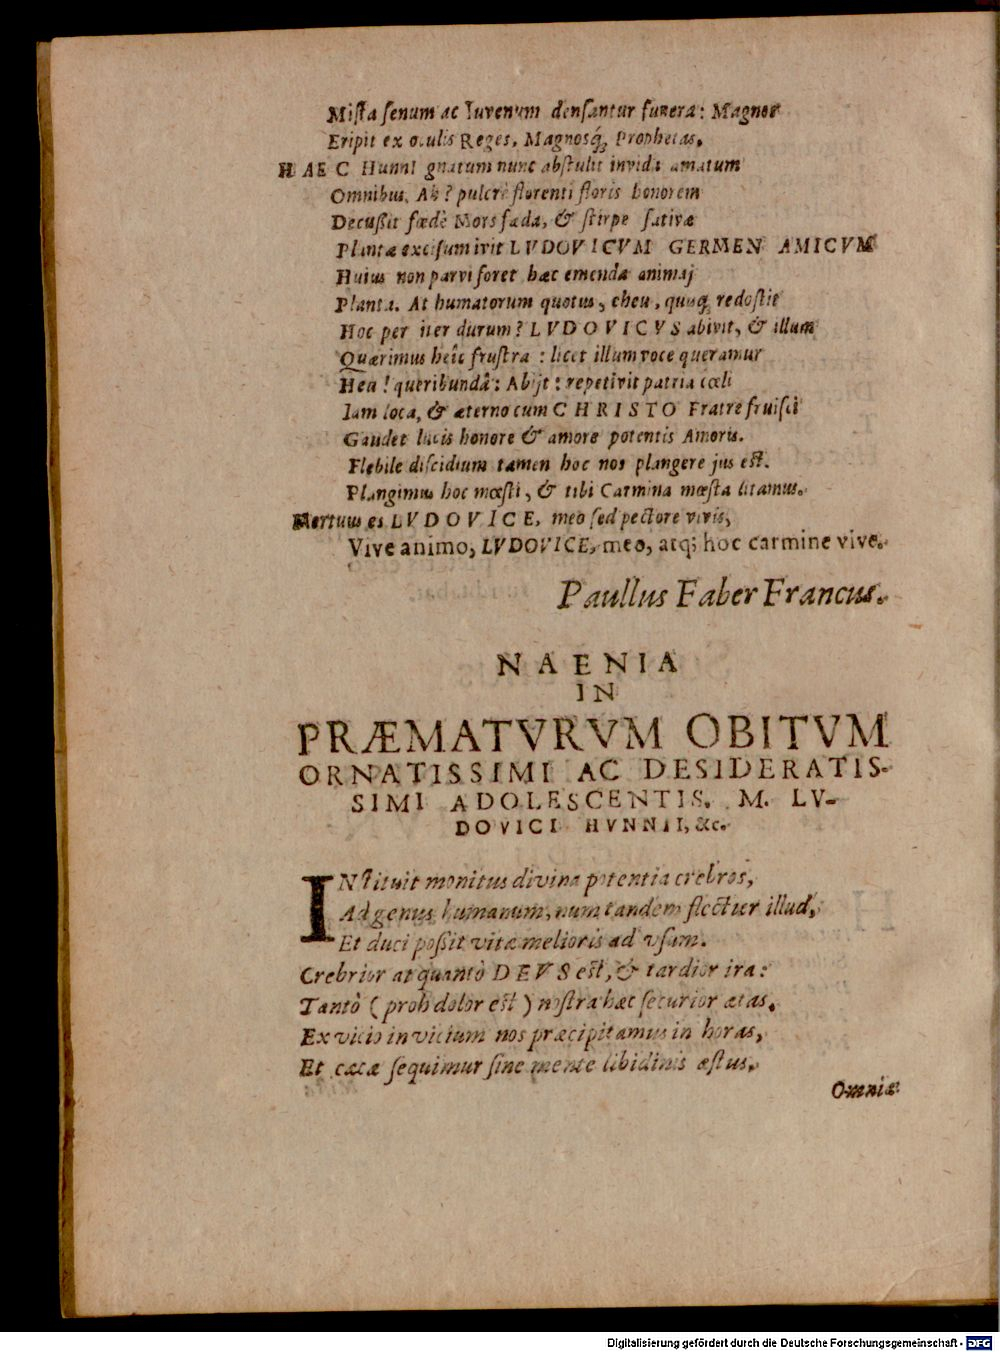 Mista senum ac Iuvenum densantur funera: Magnos
Eripit ex oculis Reges, Magnosq́; Prophetas.
HAEC HunnI gnatum nunc abstulit invida amatum
Omnibus. Ah? pulcrè florenti floris honorem
Decussit fœdè Mors fæda, & stirpe sativæ
Plantæ excisum ivit LVDOVICVM GERMEN AMICVM
Huius non parvi foret hæc emenda animaj
Planta. At humatorum quotus, eheu, quusq; redostit
Hoc per iter durum? LVDOVICVS abivit, & illum
Quærimus heîc frustra: licet illum voce queramur
Hea! queribundâ: Abijt: repetivit patria cœli
Iam loca, & æterno cum CHRISTO Fratre fruisci
Gaudet lucis honore & amore potentis Amoris.
Flebile discidium tamen hoc nos plangere jus est.
Plangimus hoc mœsti, & tibi Carmina mœsta litamus.
Mortuus es LVDOVICE, meo sed pectore vivis,
Vive animo, LVDOVICE, meo, atq; hoc carmine vive.
Paullus Faber Francus.
NAENIA
IN
PRÆMATVRVM OBITVM
ORNATISSIMI AC DESIDERATIS-
SIMI ADOLESCENTIS. M. LV-
DOVICI HVNNII, &c.
INstituit monitus divina potentia crebros,
Ad genus humanum, num tandem flectier illud,
Et duci possit vitæ melioris ad vsum.
Crebrior at quantò DEVS est, & tardior ira:
Tantò (proh dolor est) nostra hæc securior ætas.
Ex vicio in vicium nos præcipitamus in horas,
Et cæcæ sequimur sine mente libidinis æstus.
Omnia
Digitalisierung gefördert durch die Deutsche Forschungsgemeinschaft - DFG